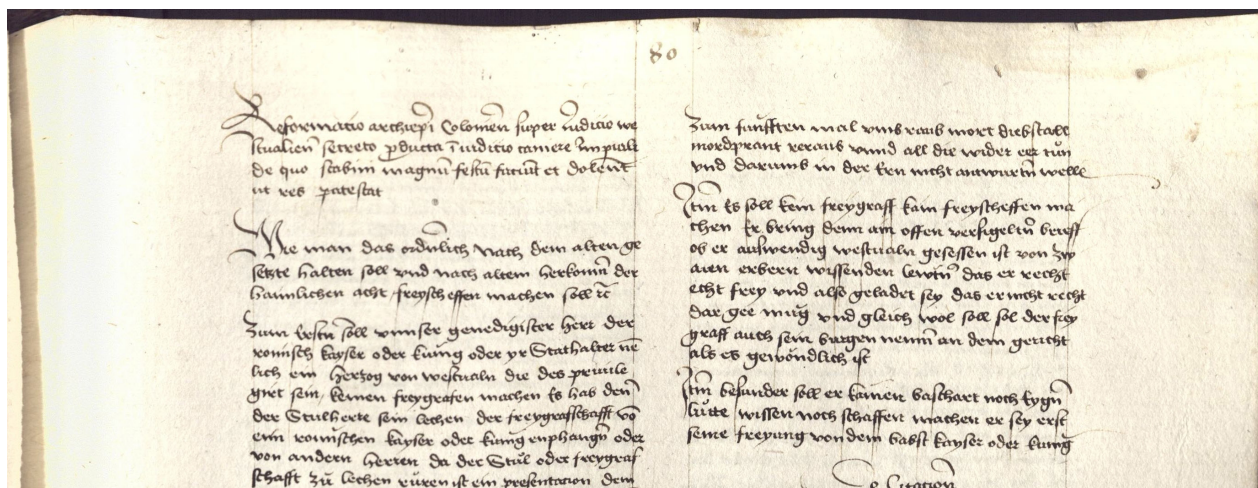 80
Reformatio archiepi Colonien̄ super iudicio we
stualien̄ secreto ꝓducta ī iudicio camere imꝑiali
de quo scabini magnū festū faciūt et dolent
ut res patestat
Wie man das ordnlich nach dem alten ge
setzte halten soll vnd nach altem herkomn̄ der
haimlichen acht freyscheffen machen soll ꝛc
Zum erstn̄ soll vnnser genedigister herr der
romisch kayser oder kunig oder yr Stathalter nē
lich ein herzog von westualn die des priuile
girt sein, keinen freygrafen machen Es hab den̄
der Stulherre sein lechen der freygrafschafft vō
eim romischen kayser oder kunig enphangn̄ oder
von andern herren da der Stul oder freygraf
schafft zu lechen ruren ist ein presentacion dem
Zum funfften mal vmb raub mort diebstall
mordprant reraub vnnd all die wider eer tun
vnd darumb in der ken nicht antwurtn̄ welle
Itm̄ Es soll kein freygraff kain freyscheffen ma
chen Er bring denn ain offen versigeltn̄ brieff
ob er auswendig westualn gesessen ist von zw
aien erbern wissenden lewtn̄ das er recht
echt frey vnd also geladet sey das er nicht recht
dar gee mug vnd gleich wol soll sol der frey
graff auch sein burgen nennn̄ an dem gericht
als es gewondlich ist
Itm̄ besunder soll er kainen basthart noch eygn̄
lutte wissen noch schaffen machen er sey erst
seine freyung von dem babst kayser oder kunig
Citacion̄